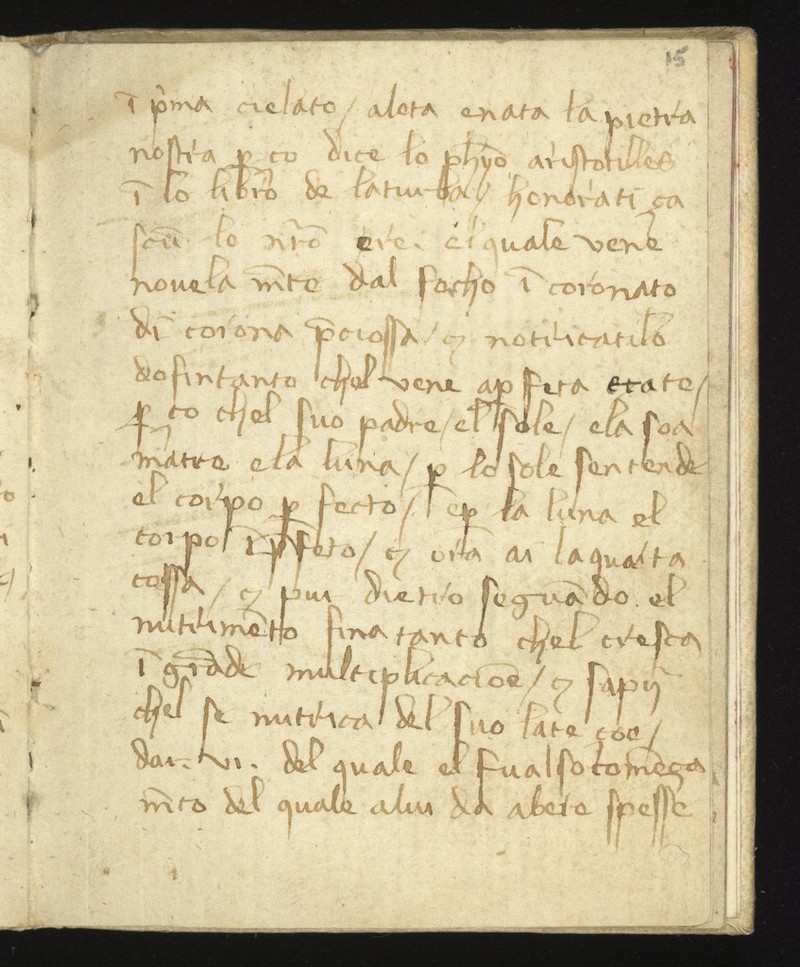 15
ī p̄ma cielato / alora enata la pietra
nostra ꝑ co dice lo phyō aristotilles
ī lo libro de laturba / honorati ca
scū lo nr̄o ere. elquale vene
nouela m̄te dal focho ī coronato
di corona p̄ciossa / ⁊ notiricatilo
dofintanto chel vene aꝑfeta etate /
ꝑ co chel suo padre / el sole / ela soa
matre ela luna / ꝑ lo sole sentende
el corpo ꝑ fecto / eꝑ la luna el
corpo īꝑfeto / ⁊ ora ai laquarta
cossa / ⁊ pur dietro seguādo el
nutrimēto fina tanto chel cresca
ī grāde multiplicacioē / ⁊ sapij
chel se nutrica del suo late çoe /
dar. vi. del quale el fu al so comēça
m̄to del quale alui da abere spesse